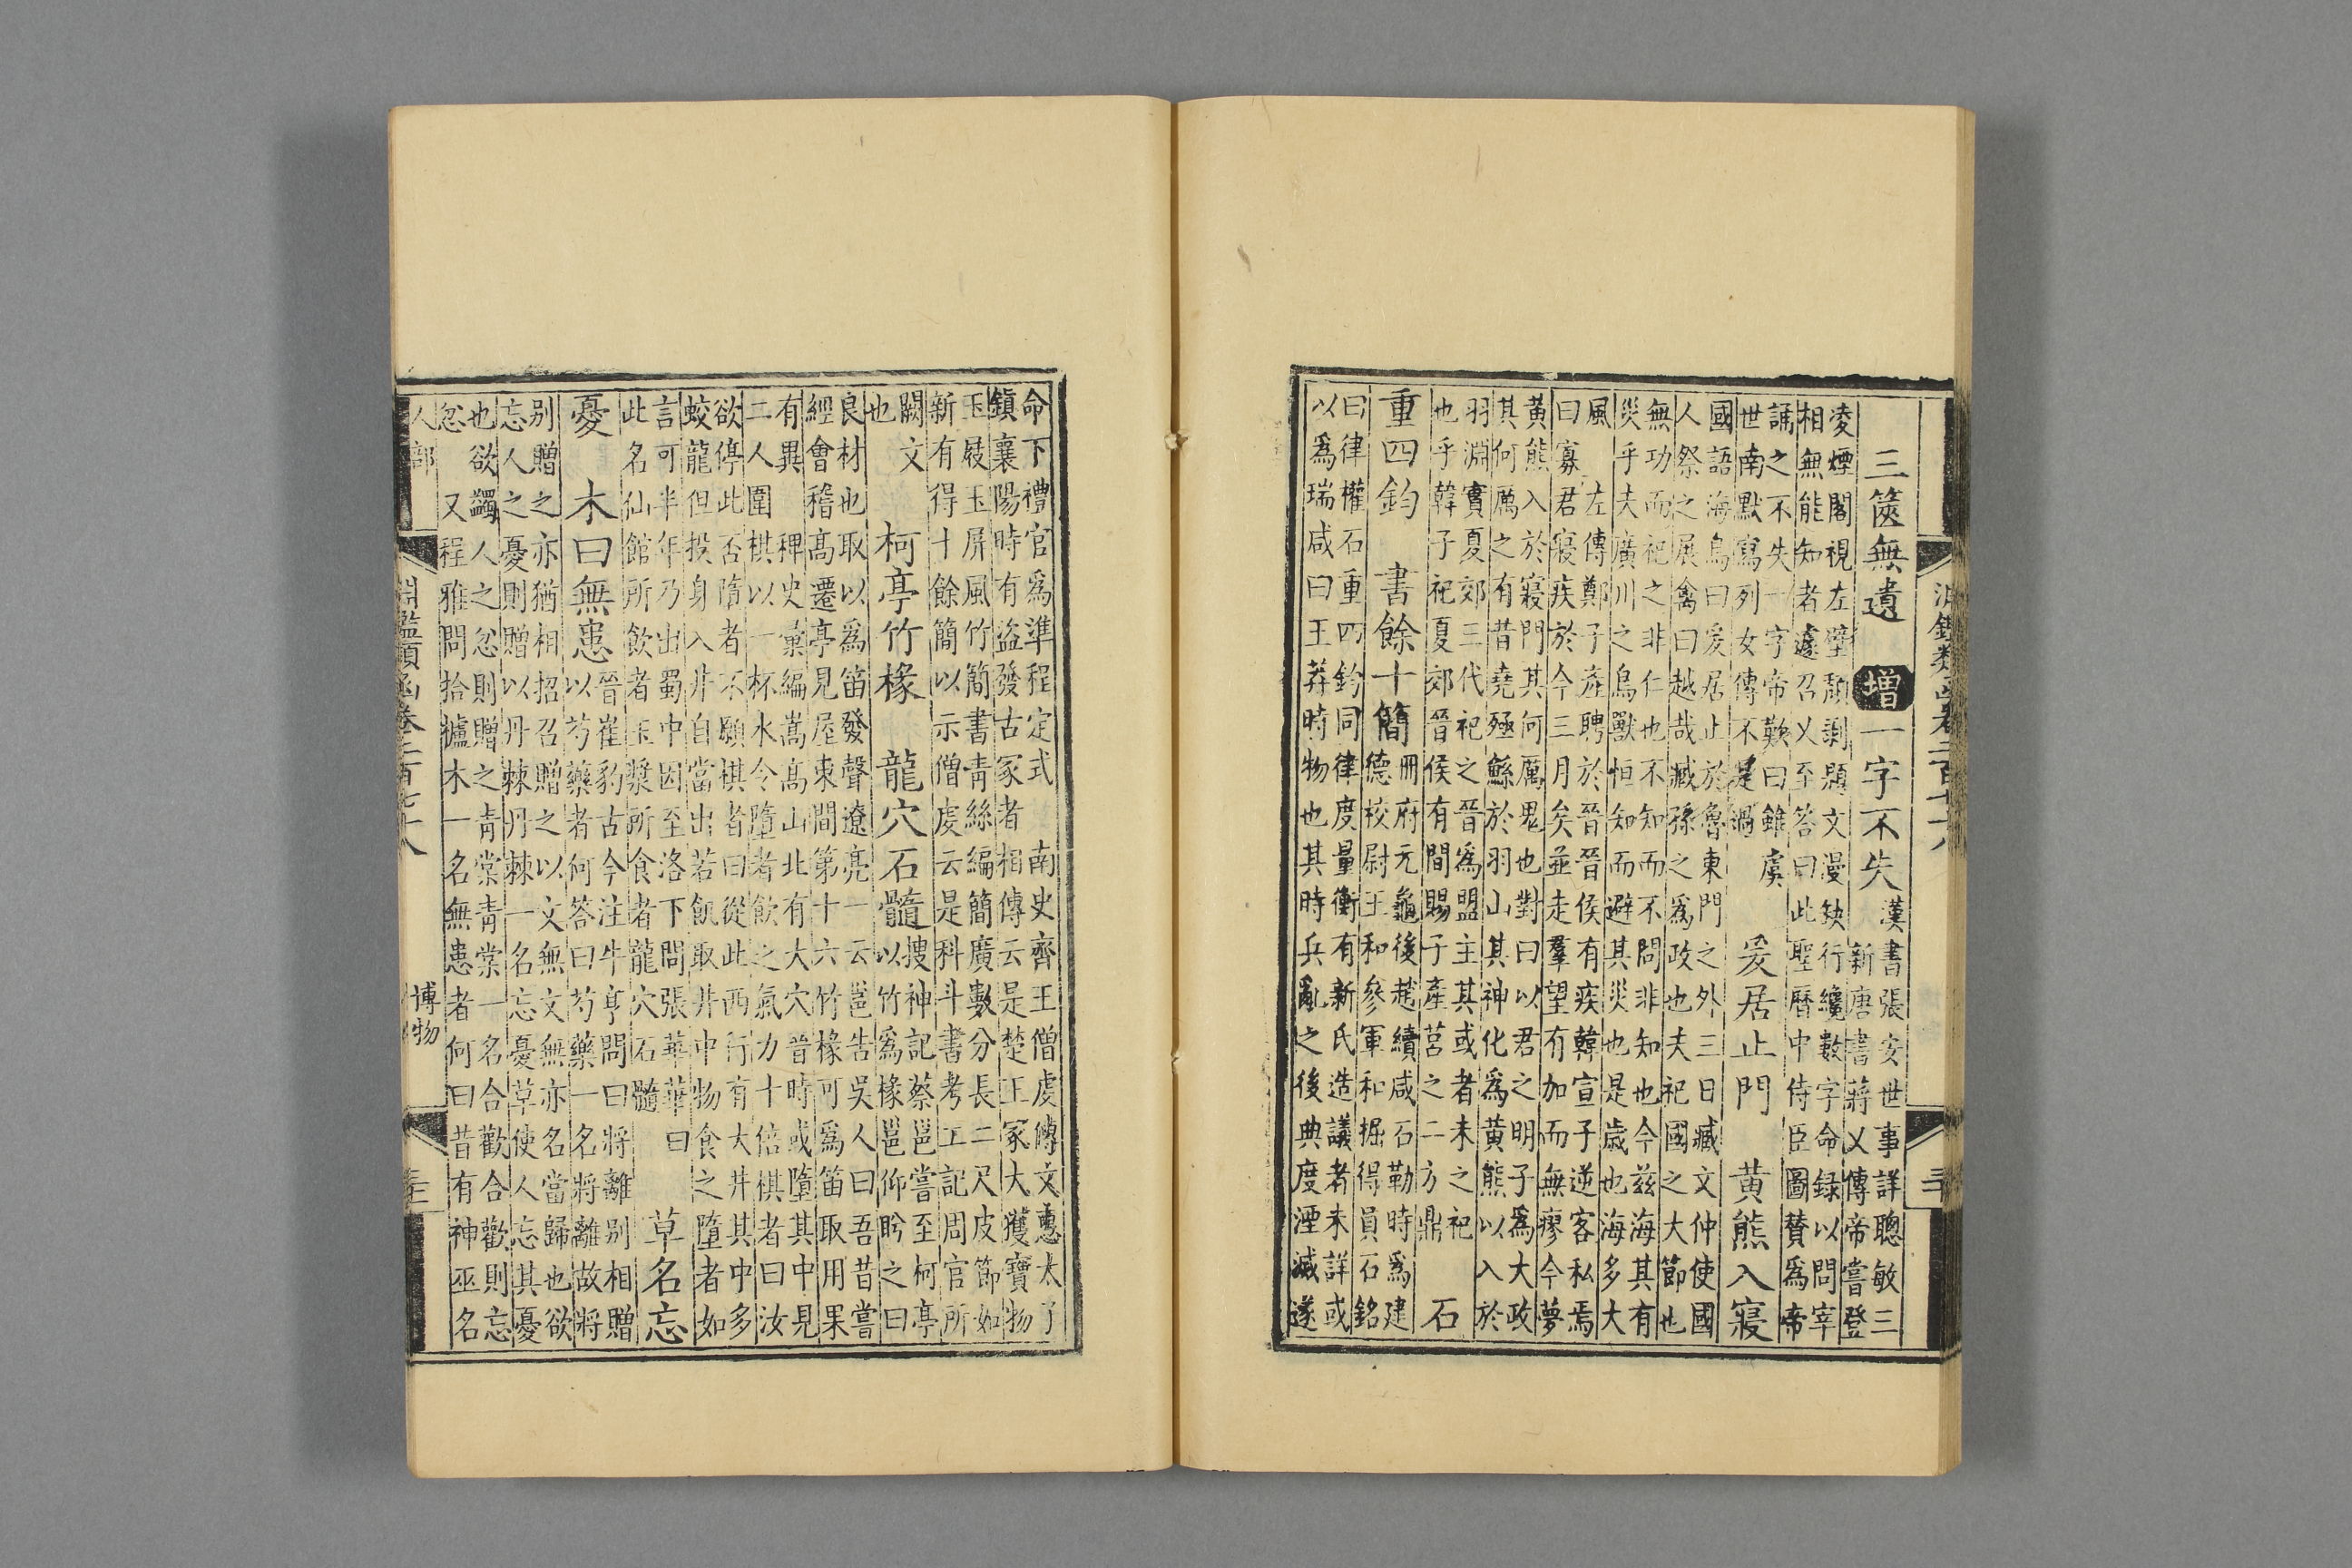 淵鑑類函卷二百七十八
三篋無遺 增 一字不失 漢書張安世事詳聰敏三
新唐書蔣乂傳帝嘗登
凌煙閣視左壁頹剝題文漫缺行纔數字命録以問宰
相無能知者遽召乂至答曰此聖曆中侍臣圖贊爲帝
誦之不失一字帝歎曰雖虞
世南默寫列女傳不是過
爰居止門 黄熊入寢
國語海鳥曰爰居止於魯東門之外三日臧文仲使國
人祭之展禽曰越哉臧孫之爲政也夫祀國之大節也
無功而祀之非仁也不知而不問非知也今兹海其有
災乎夫廣川之鳥獸恒知而避其災也是歲也海多大
風 左傳鄭子產聘於晉晉侯有疾韓宣子逆客私焉
曰寡君寢疾於今三月矣並走羣望有加而無瘳今夢
黄熊入於寢門其何厲鬼也對曰以君之明子爲大政
其何厲之有昔堯殛鯀於羽山其神化爲黄熊以入於
羽淵實夏郊三代祀之晉爲盟主其或者未之祀
也乎韓子祀夏郊晉侯有間賜子產莒之二方鼎
石
重四鈞 書餘十簡 冊府元龜後趙續咸石勒時爲建
德校尉王和參軍和掘得員石銘
曰律權石重四鈞同律度量衡有新氏造議者未詳或
以爲瑞咸曰王莽時物也其時兵亂之後典度湮滅遂
命下禮官爲準程定式 南史齊王僧虔傳文惠太子
鎮襄陽時有盜發古冢者相傳云是楚王冢大獲寶物
玉屐玉屏風竹簡書青絲編簡廣數分長二尺皮節如
新有得十餘簡以示僧虔云是科斗書考工記周官所
闕文
也
柯亭竹椽 龍穴石髓 搜神記蔡邕嘗至柯亭
以竹爲椽邕仰眄之曰
良材也取以爲笛發聲遼亮一云邕告吳人曰吾昔嘗
經會稽高遷亭見屋東間第十六竹椽可爲笛取用果
有異 稗史彙編嵩高山北有大穴晉時或墮其中見
二人圍棋以一杯水令墮者飲之氣力十倍棋者曰汝
欲停此否墮者不願棋者曰從此西行有大井其中多
蛟龍但投身入井自當出若飢取井中物食之墮者如
言可半年乃出蜀中因至洛下問張華華曰
此名仙館所飲者玉漿所食者龍穴石髓
草名忘
憂 木曰無患 晉崔豹古今注牛亨問曰將離別相贈
以芍藥者何答曰芍藥一名將離故將
別贈之亦猶相招召贈之以文無文無亦名當歸也欲
忘人之憂則贈以丹棘丹棘一名忘憂草使人忘其憂
也欲蠲人之忿則贈之青棠青棠一名合歡合歡則忘
忿 又程雅問拾櫨木一名無患者何曰昔有神巫名
人部
淵鑑類函卷二百七十八
博物